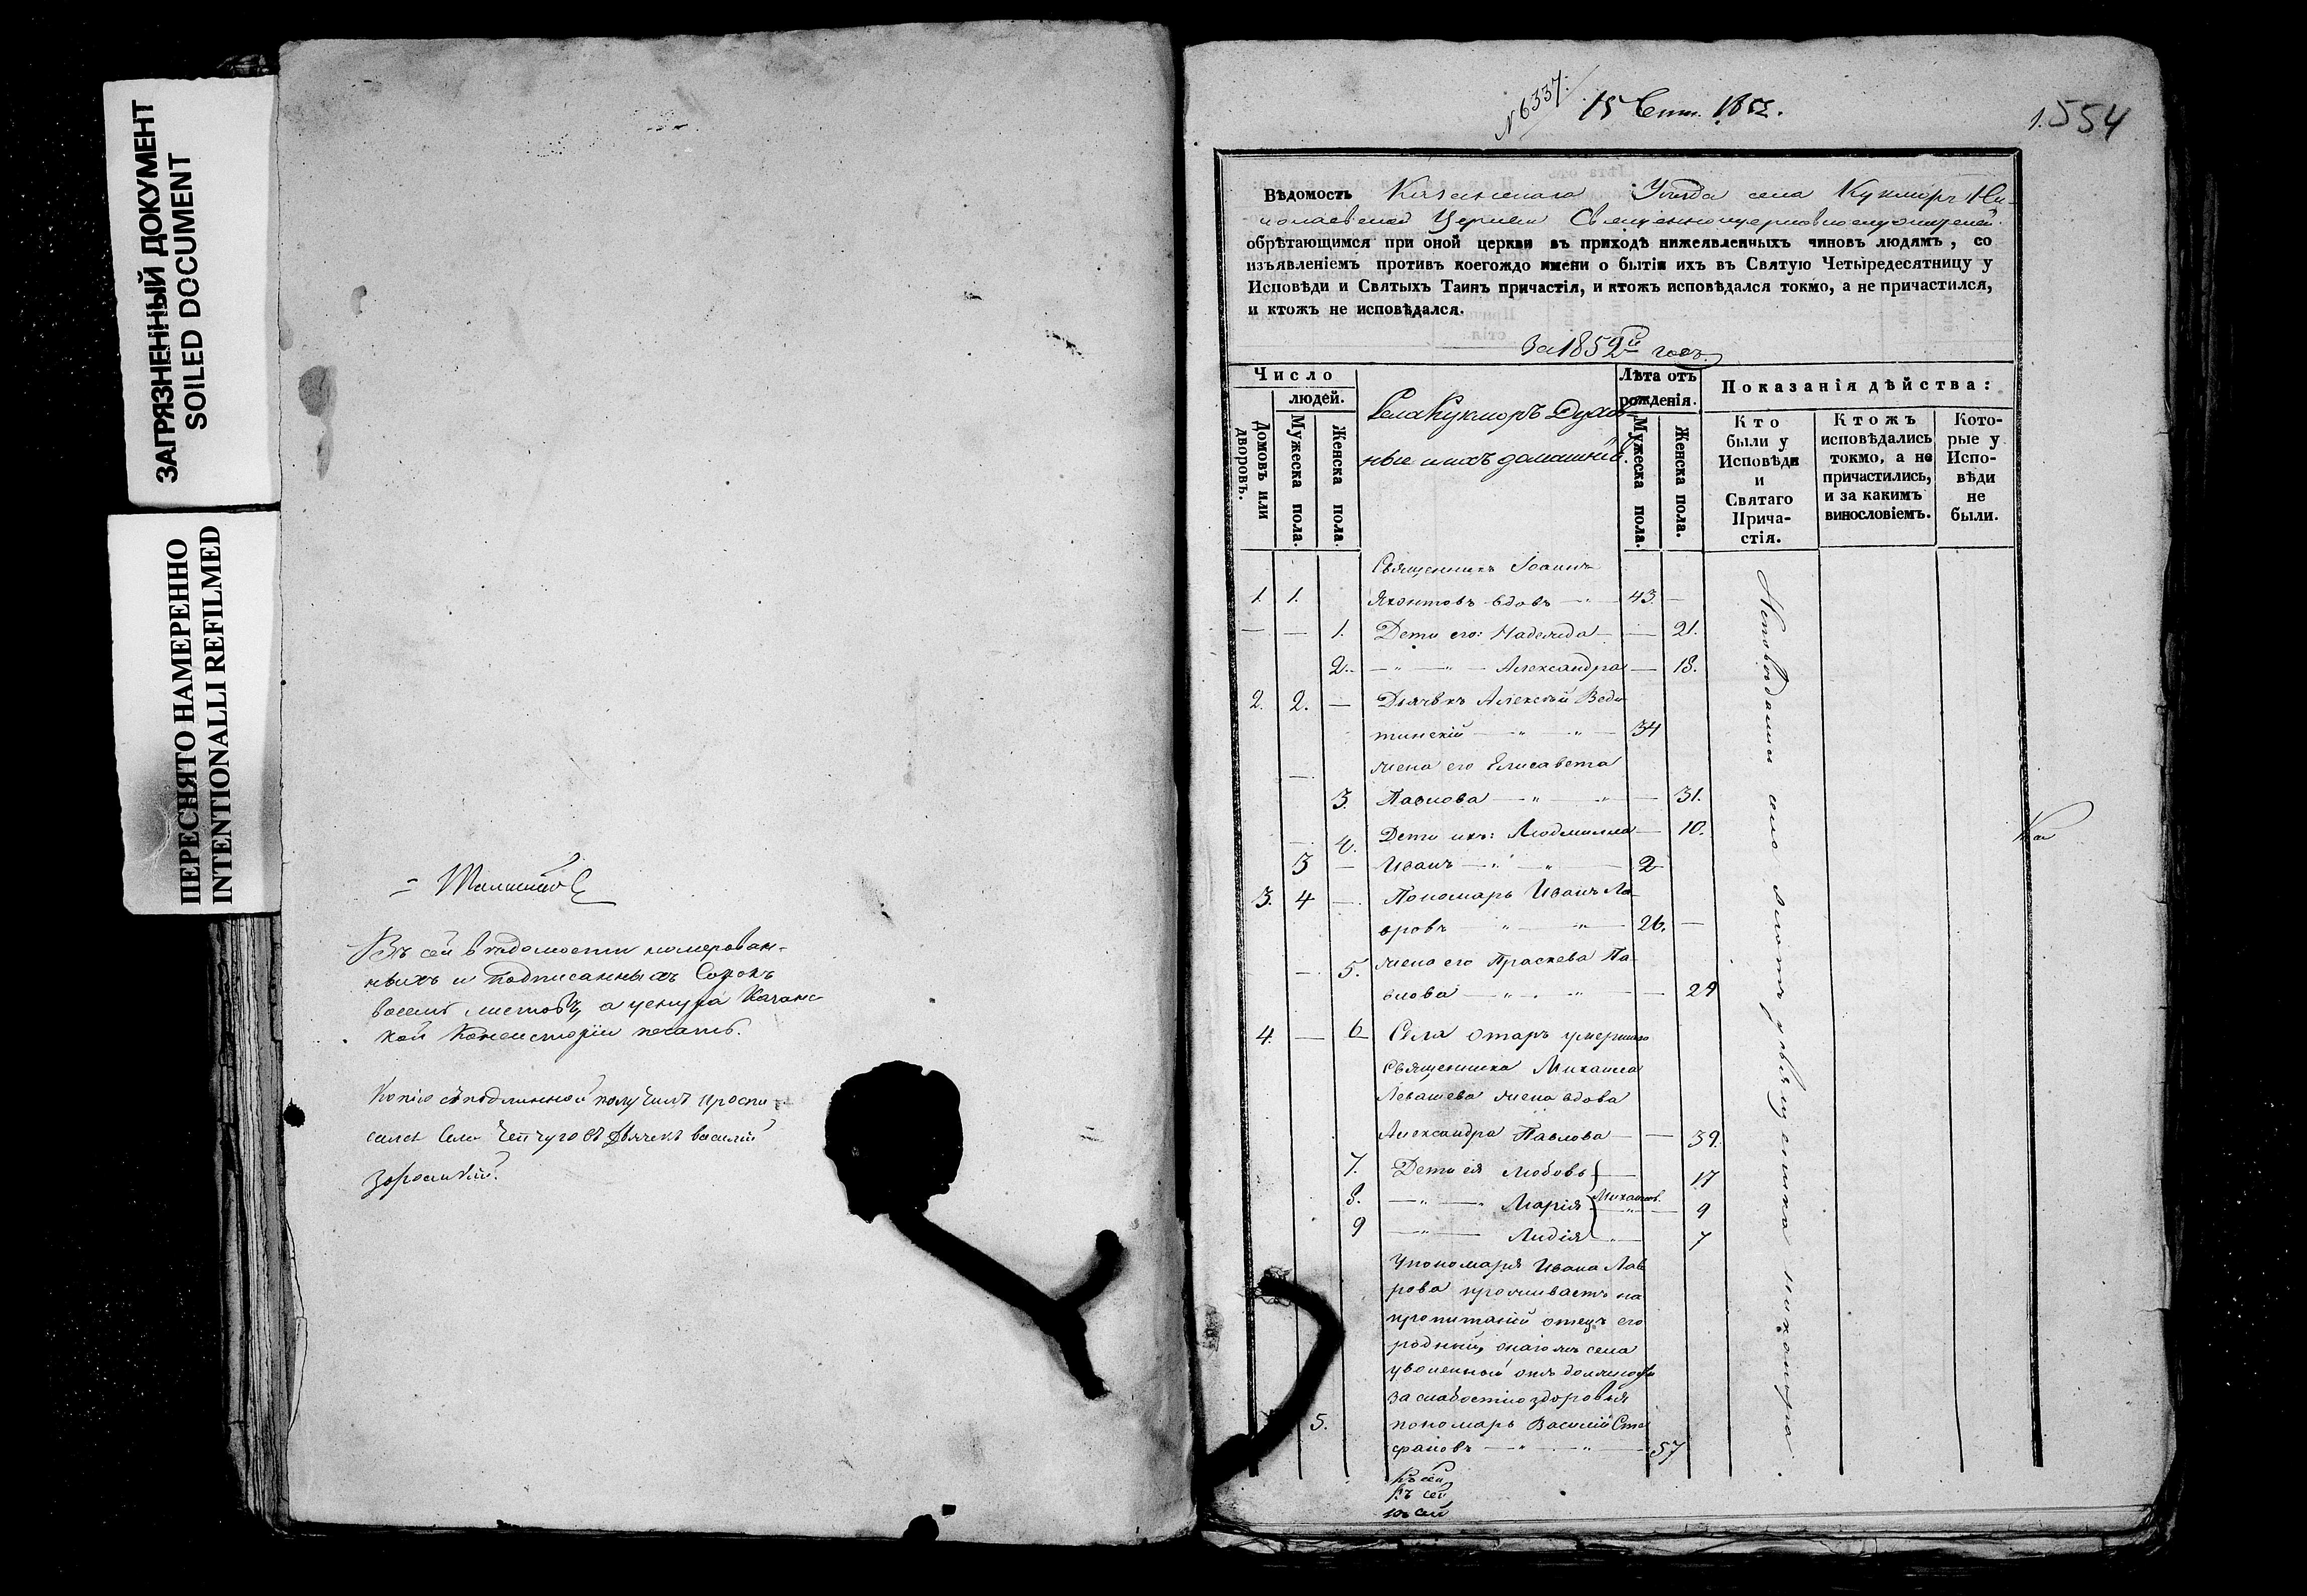 ЗАГРЯЗНЕННЫЙ ДОКУМЕНТ
SOILED DOCUMENT
ПЕРЕСНЯТО НАМЕРЕННО
INTENTIONALLI REFILMED
Въ сей ведомости номерован-
ныхъ и подписанныхъ Сорокъ
восемь листовъ, а ценура Казанс
кой Консисторіи печать.
Копію съ подлинной получилъ и роспи
сался Села Чепчуговъ Дьячекъ василій
№ 6337.
15 Сент. 1852.
1.554
Вѣдомость Казанскаго Уезда села Кукморъ Ни-
колаевской Церкви
обрѣтающимся при оной церкви въ приходѣ нижеявленныхъ чиновъ людямъ, со
изъявленіемъ противъ коегождо имени о бытіи ихъ въ Святую Четыредесятницу у
Исповѣди и Святыхъ Таинъ причастія, и ктожъ исповѣдался токмо, а не причастился,
и ктожъ не исповѣдался.
За 1852й годъ.
Число
людей.
Домовъ или дворовъ.
Мужеска пола.
Женска пола.
Села Кукморъ Духов-
ные и ихъ домашніе.
Лѣта отъ
рожденія.
Мужеска пола.
Женска пола.
Показанія дѣйства:
Кто
были у
Исповѣди
и
Святаго
Прича-
стія.
Ктожъ
исповѣдались
токмо, а не
причастились,
и за какимъ
винословіемъ.
Кото-
рые у
Испо-
вѣди
не
были.
Священникъ Іоаннъ
1. 1. Яхонтовъ вдовъ — " — 43. —
— — 1. Дети его: Надежда — — 21.
2. — " — " — Александра — 18.
2. 2. — Дьячекъ Алексѣй Веди
тинскій — " — " — 34
— жена его Елисавета
3. Павлова — " — " — — 31.
— 4. Дети ихъ: Людмилла — 10.
3 — Иванъ — " — " — 2
3. 4 — Пономарь Иванъ Ла-
вровъ " — " — 26. —
— 5. жена его Праскева Па-
влова — " — . — " — — 29
4. — 6 Села Отаръ умершаго
священника Михаила
Левашева жена вдова
Александра Павлова — — 39.
7. Дети ея Любовь — 17
8. — " — " Марія Михаилов. — " — 9
9 — " — Лидія — " — 7
У пономаря Ивана Лав
рова проживаетъ на
пропитаніи отецъ его
родный, онагожъ села
уволенный отъ должности
за слабостію здоровья
5. пономарь Василій Сте
фановъ — " — . — " — 57
Къ сей
Къ сей